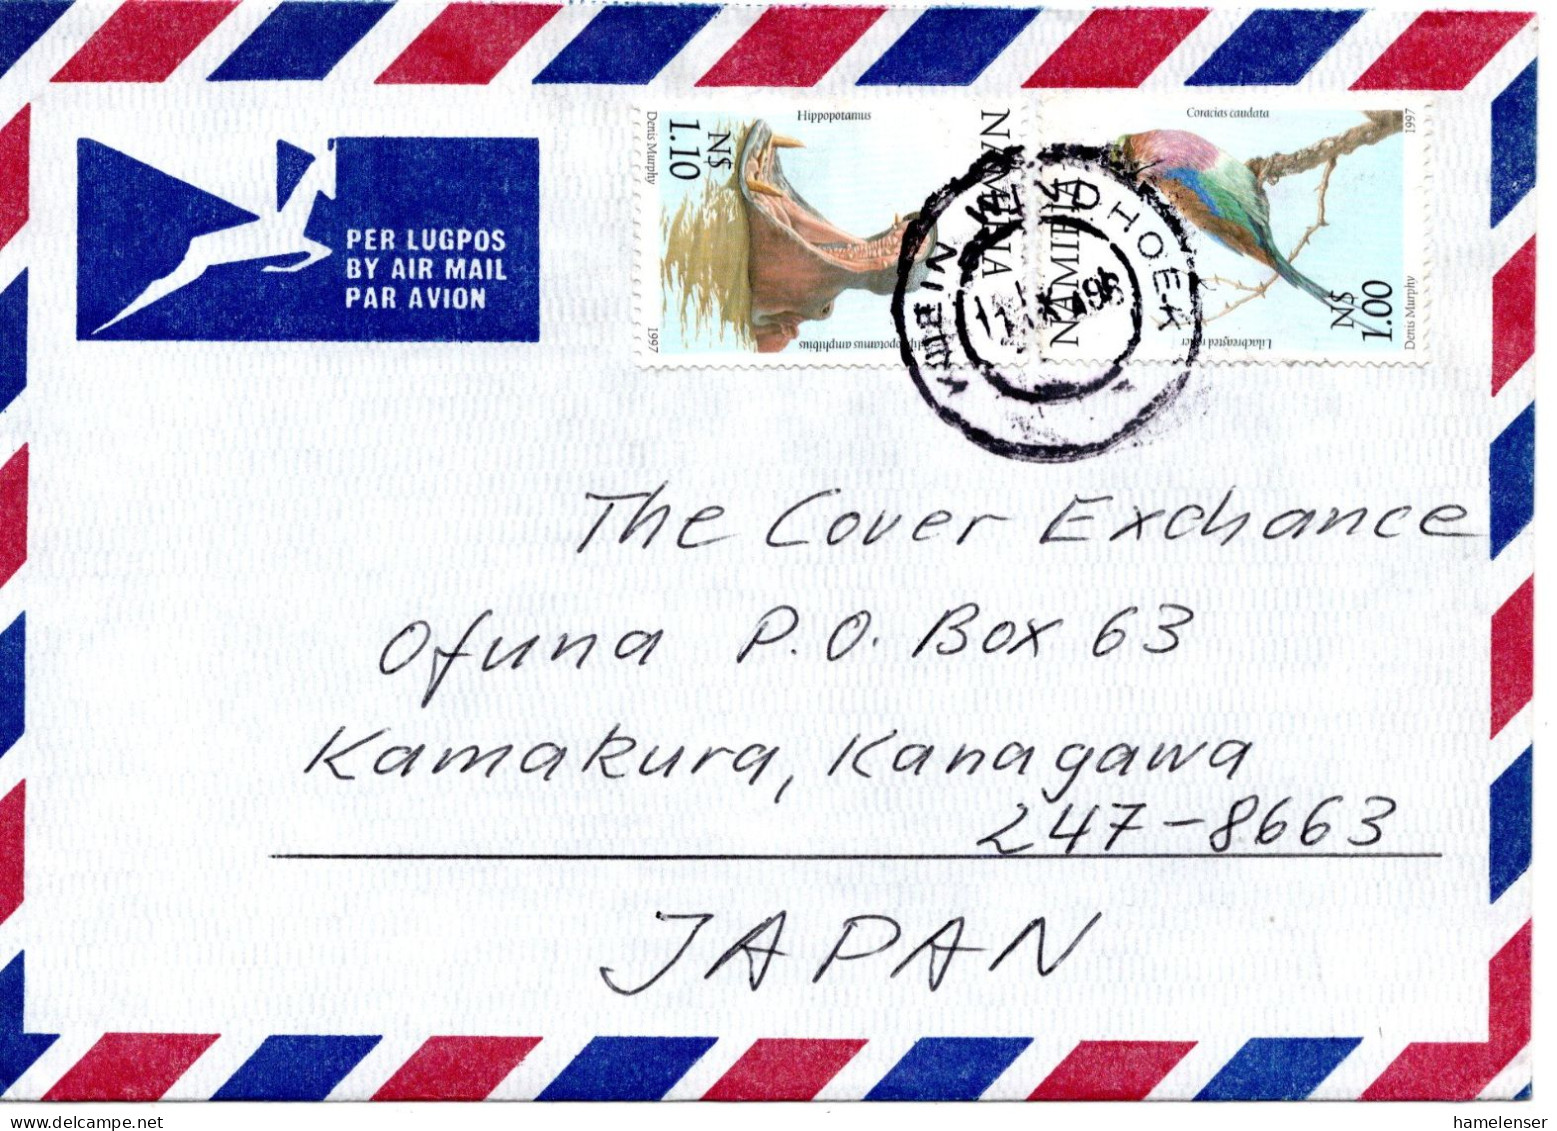 PER LUGPOS
BY AIR MAIL
PAR AVION
Hippopotamus
Denis Murphy
N$
1.10
1997
Hippopotamus amphibius
NAMIBIA
Coracias caudata
1997
NAMIBIA
Lilacbreasted roller
N$
1.00
Denis Murphy
WINDHOEK
The Cover Exchance
Ofuna P.O. Box 63
Kamakura, Kanagawa
247-8663
JAPAN
hamelenser